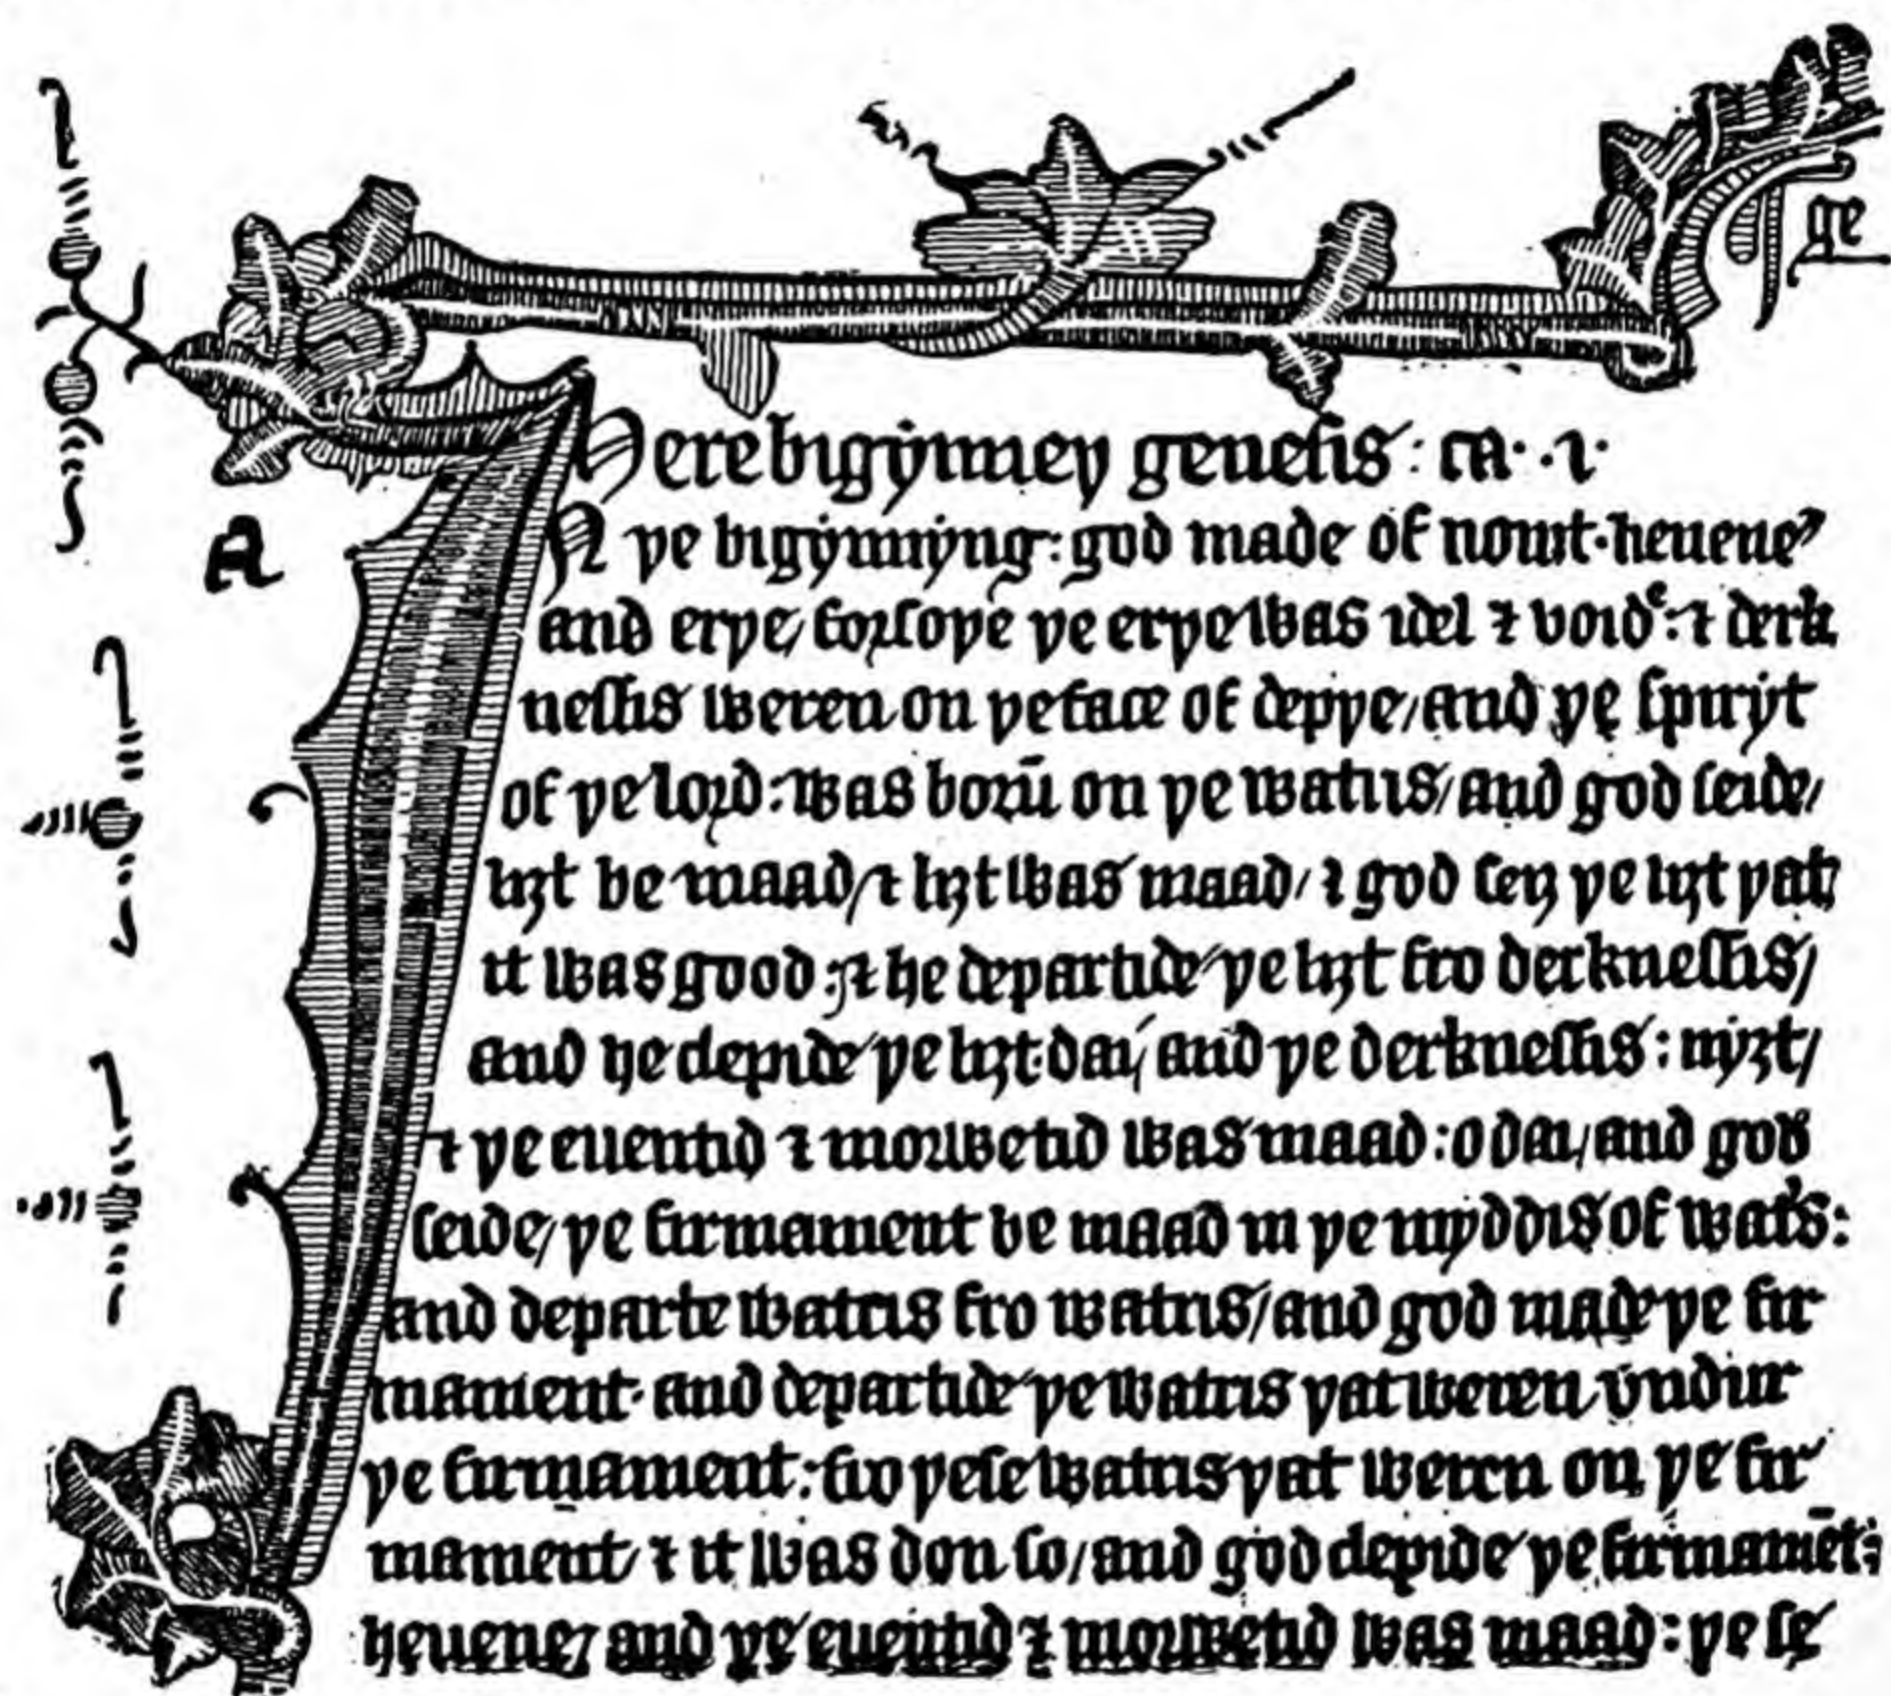 ge
Here bigẏnneþ genesis: ca. .i.
A
IN þe bigẏnnẏng: god made of nouȝt heuene
and erþe, forsoþe þe erþe was idel ⁊ voidᵉ: ⁊ derk
nessis weren on þe face of depþe, and þe spirẏt
of þe lord: was borū on þe watris, and god seide,
liȝt be maad, ⁊ liȝt was maad, ⁊ god seiȝ þe liȝt þat
it was good: ⁊ he departide þe liȝt fro derknessis,
and he clepide þe liȝt. dai, and þe derknessis: nẏȝt,
⁊ þe euentid ⁊ morwetid was maad: o dai, and god
seide, þe firmament be maad in þe mẏddis of wat's:
and departe watris fro watris, and god made þe fir
mament. and departide þe watris þat weren vndir
þe firmament: fro þese watris þat weren on þe fir
mament, ⁊ it was don so, and god clepide þe firmamēt:
heuene, and þe euentid ⁊ morwetid was maad: þe se